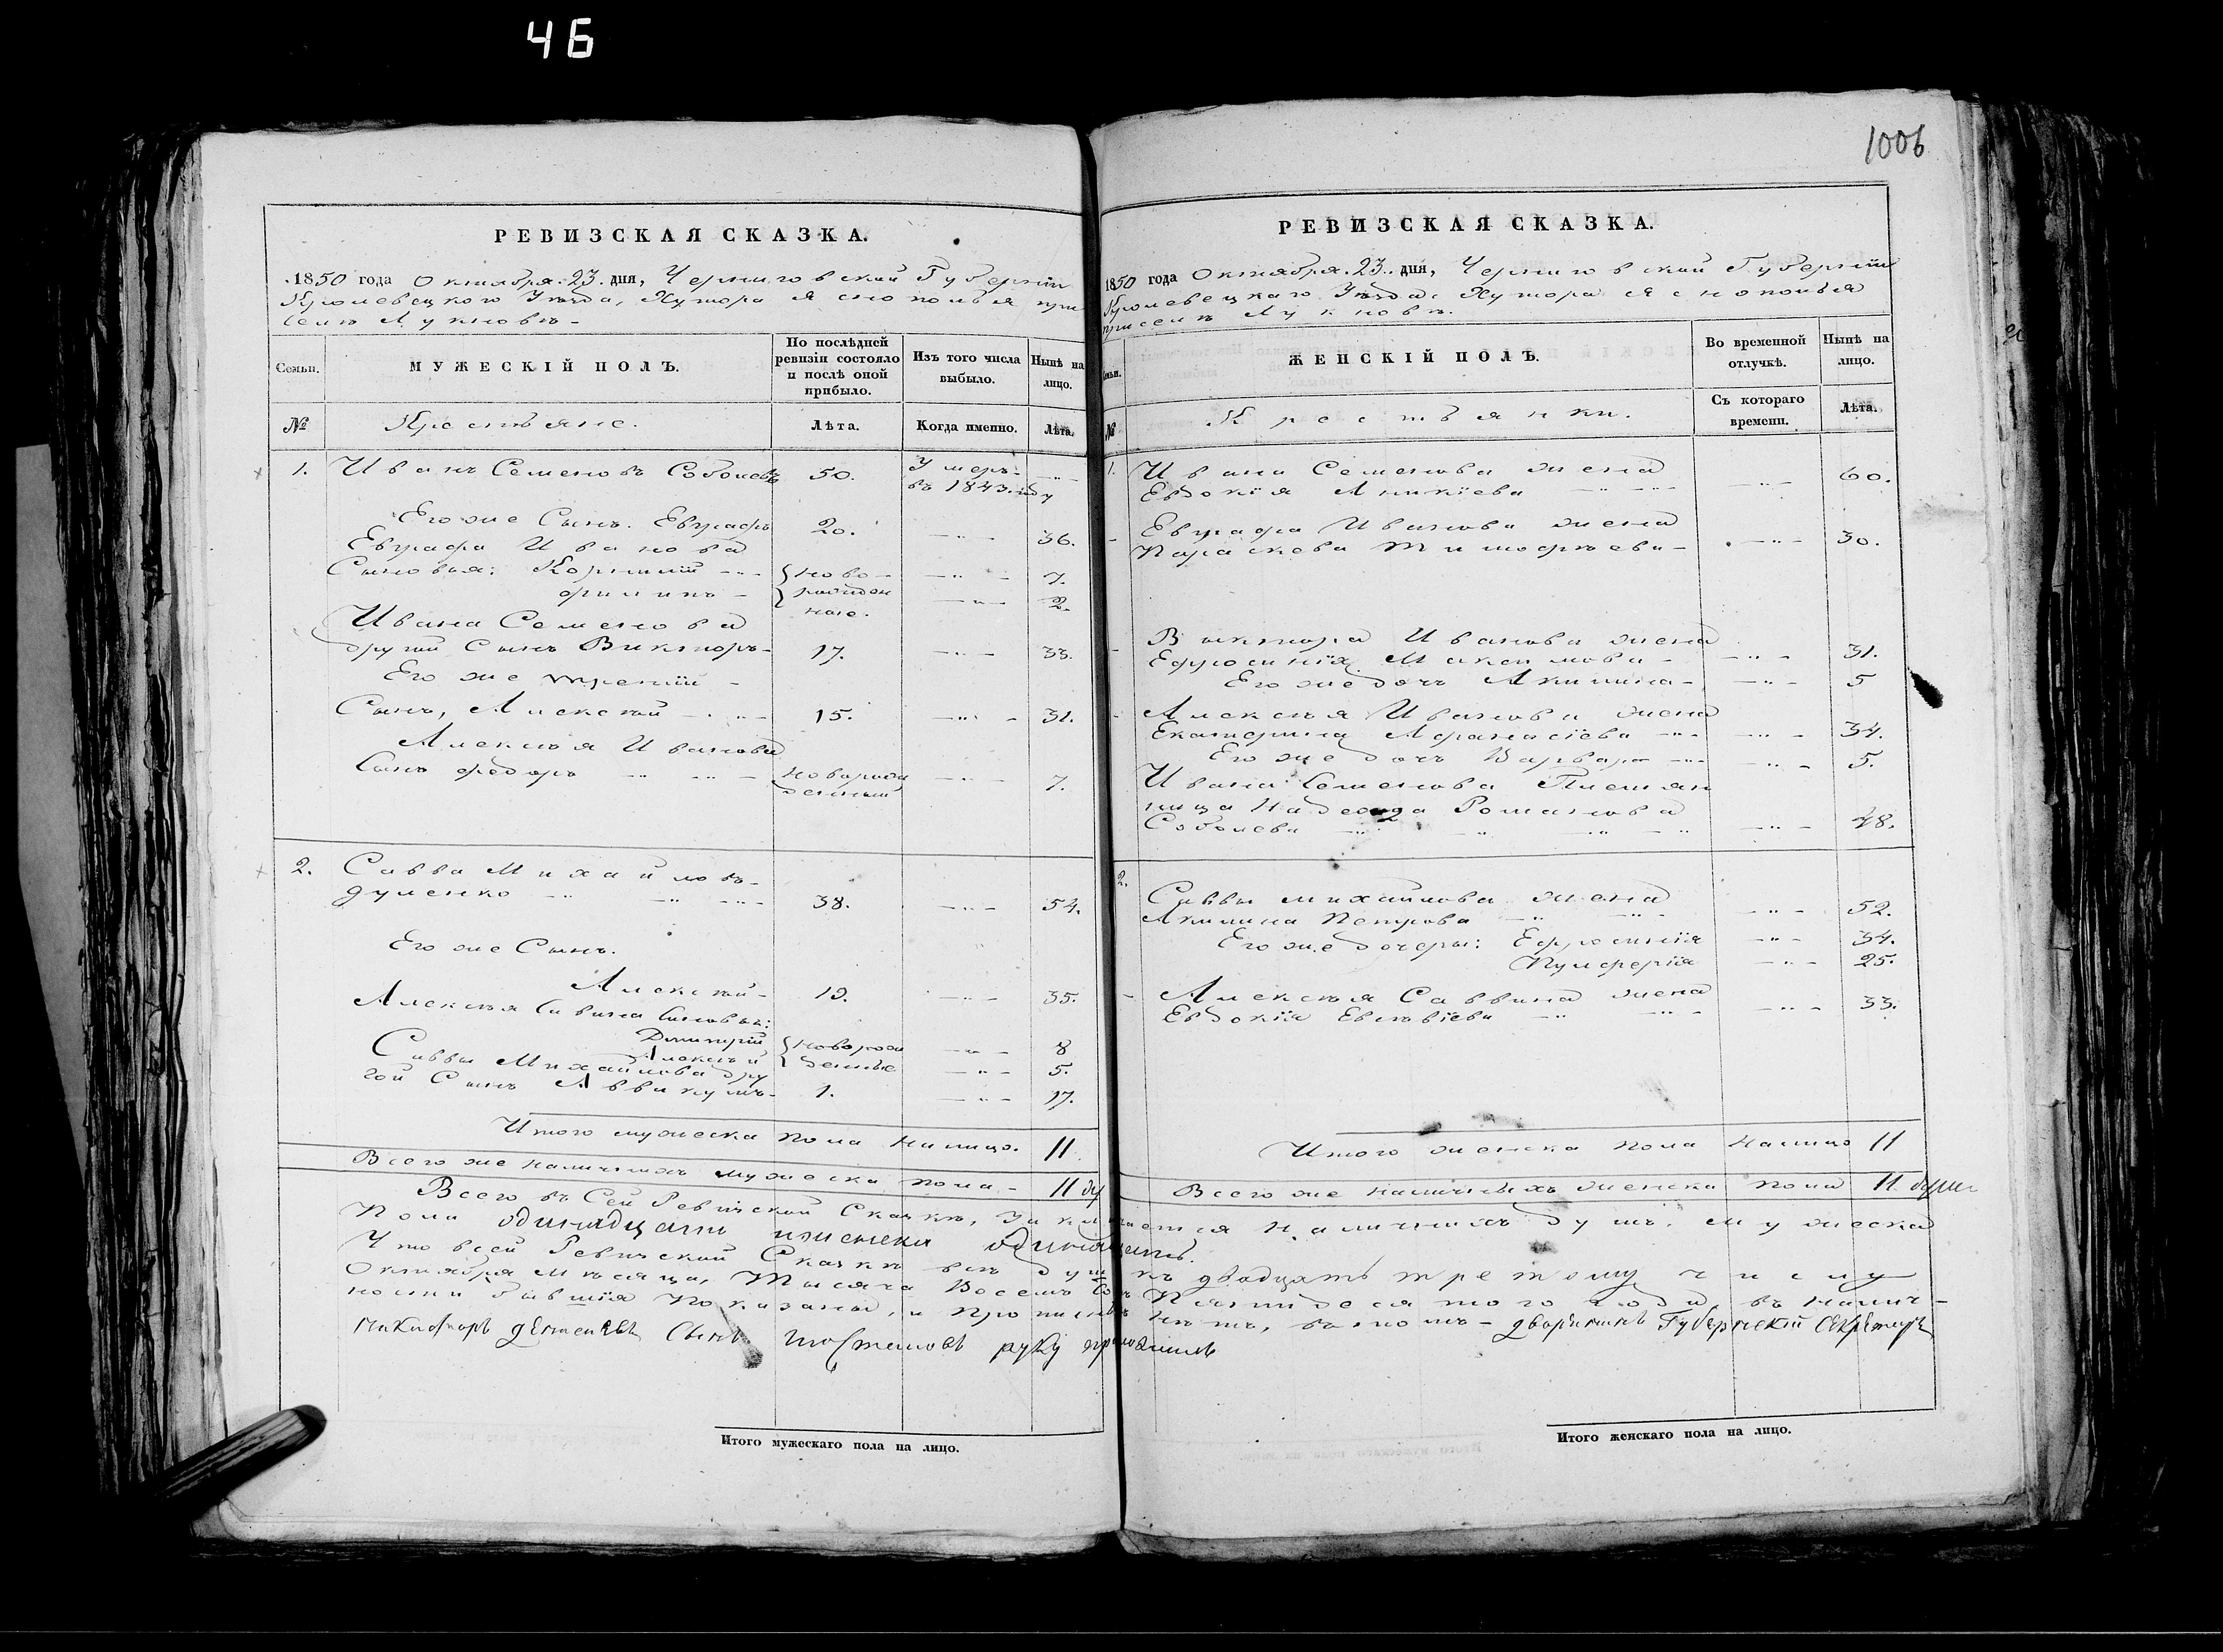 46
1006
РЕВИЗСКАЯ СКАЗКА.
1850 года Октября 23 дня, Черниговской Губернiи
Кролевецкого Уѣзда, Хутора Яснополья при
селѣ Лукновѣ
Семьи.
МУЖЕСКIЙ ПОЛЪ.
По послѣдней ревизiи состояло и послѣ оной прибыло.
Изъ того числа выбыло.
Нынѣ на лицо.
№
Крестьяне.
Лѣта.
Когда именно.
Лѣта.
1. Иванъ Семеновъ Соболевъ 50. Умеръ
въ 1843 году
Его же Сынъ Евграфъ 20. 36.
Евграфа Иванова
Сыновья: Корнилiй Ново- 7.
Филипъ рожден 2.
ные.
Ивана Семенова
другой Сынъ Викторъ 17. 33.
Его же третiй
Сынъ, Алексѣй 15. 31.
Алексѣя Иванова
Сынъ Федоръ Новорож 7.
денный
2. Савва Михайловъ
Дуленко 38. 54.
Его же Сынъ.
Алексѣй 19. 35.
Алексѣя Савина Сыновья:
Дмитрiй Новорож 8
Алексѣй денные 5.
Саввы Михайлова дру
гой Сынъ Аввакумъ 1. 17.
Итого мужеска пола налицо. 11
Всего же наличныхъ мужеска пола 11 ду
РЕВИЗСКАЯ СКАЗКА.
1850 года Октября 23 дня, Черниговской Губернiи
Кролевецкаго Уѣзда, Хутора Яснополья
при селѣ Лукновѣ.
Семьи.
ЖЕНСКIЙ ПОЛЪ.
Во временной отлучкѣ.
Нынѣ на лицо.
№
Крестьянки.
Съ котораго времени.
Лѣта.
1. Ивана Семенова жена 60.
Евдокiя Аникiева
Евграфа Иванова жена
Параскева Тимофѣева 30.
Виктора Иванова жена
Ефросинiя Максимова 31.
Его же дочь Акилина 5
Алексѣя Иванова жена
Екатерина Афанасiева 34.
Его же дочь Варвара 5.
Ивана Семенова Племян
ница Надежда Романова
Соболева 48.
2.
Саввы Михайлова жена
Акилина Петрова 52.
Его же дочеры: Ефросинiя 34.
Пулхерiя 25.
Алексѣя Саввина жена
Евдокiя Евсѣвiева 33.
Итого женска пола налицо 11
Всего же наличныхъ женска пола 11 душъ
Всего въ Сей Ревизской Сказкѣ, заключается наличныхъ душъ, мужеска
пола одинадцать и женска одинадцать.
Что в сей Ревизской Сказкѣ всѣ души къ двадцать третому числу
Октября Мѣсяца, Тысяча Восемъ Сотъ Пятидесятого года въ налич-
ности бывшiя показаны, и прописныхъ нѣтъ, въ томъ дворянинъ Губернскiй Секретарь
Никифоръ сынъ руку приложилъ
Итого мужескаго пола на лицо.
Итого женскаго пола на лицо.